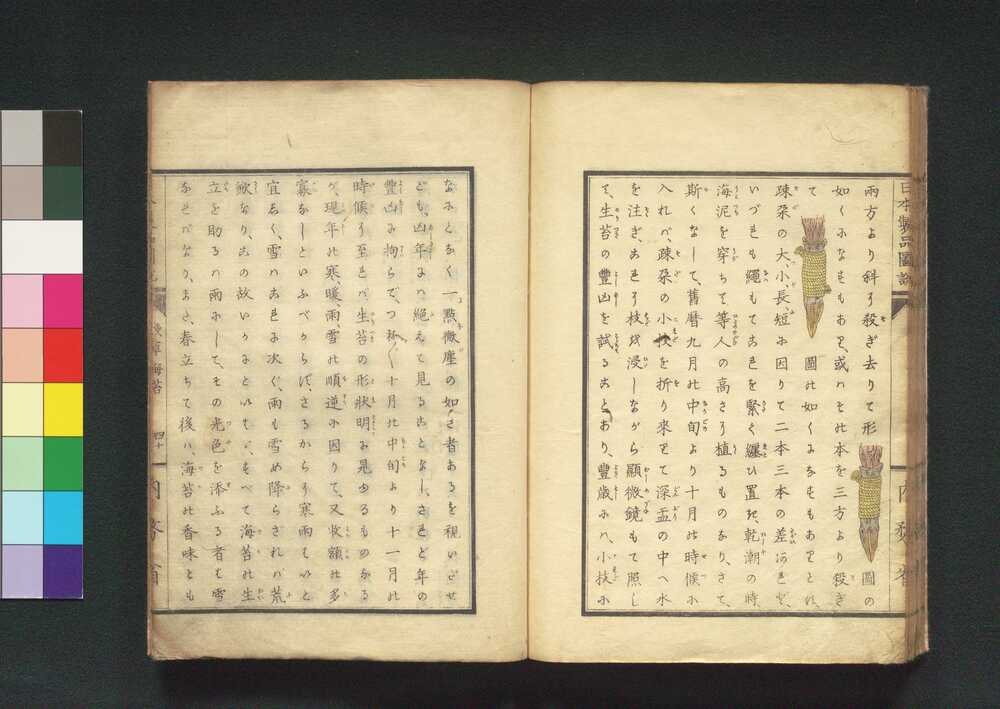 兩方より斜に殺ぎ去りて形
圖の
如くになすもあり、或ハその本を三方より殺ぎ
て
圖の如くになすもあり
疎朶の大、小、長、短に因りて二本三本の差あれど、
いづれも繩もてこれを緊く纏ひ置き、乾潮の時、
海泥を穿ちて等人の高さに植るものなり、さて、
斯くなして、舊曆九月の中旬より十月の時候に
入れバ、疎朶の小枝を折り來りて深盂の中へ水
を注ぎ、これに枝を浸しながら顯微鏡もて照し
て、生苔の豐凶を試ることあり、豐歳にハ、小枝に
なにとなく一點微塵の如き者あるを視いだせ
ども、凶年にハ絕えて見ることなし、されど年の
豐凶に拘らで、つねに十月の中旬より十一月の
時候に至れバ、生苔の形狀明に見ゆるものなる
が、現年の寒、暖、雨、雪の順逆に因りて、又收額の多
寡なしといふべからず、さるからに寒雨もいと
宜しく、雪ハこれに次ぐ、雨も雪も降らざれバ荒
歉なり、この故いかにといふに、すべて海苔の生
立を助るハ雨にして、その光色を添ふる者も雪
なれバなり、また、春立ちて後ハ、海苔の香味とも
日本製品圖說
內務省
乾海苔
四十
內務省